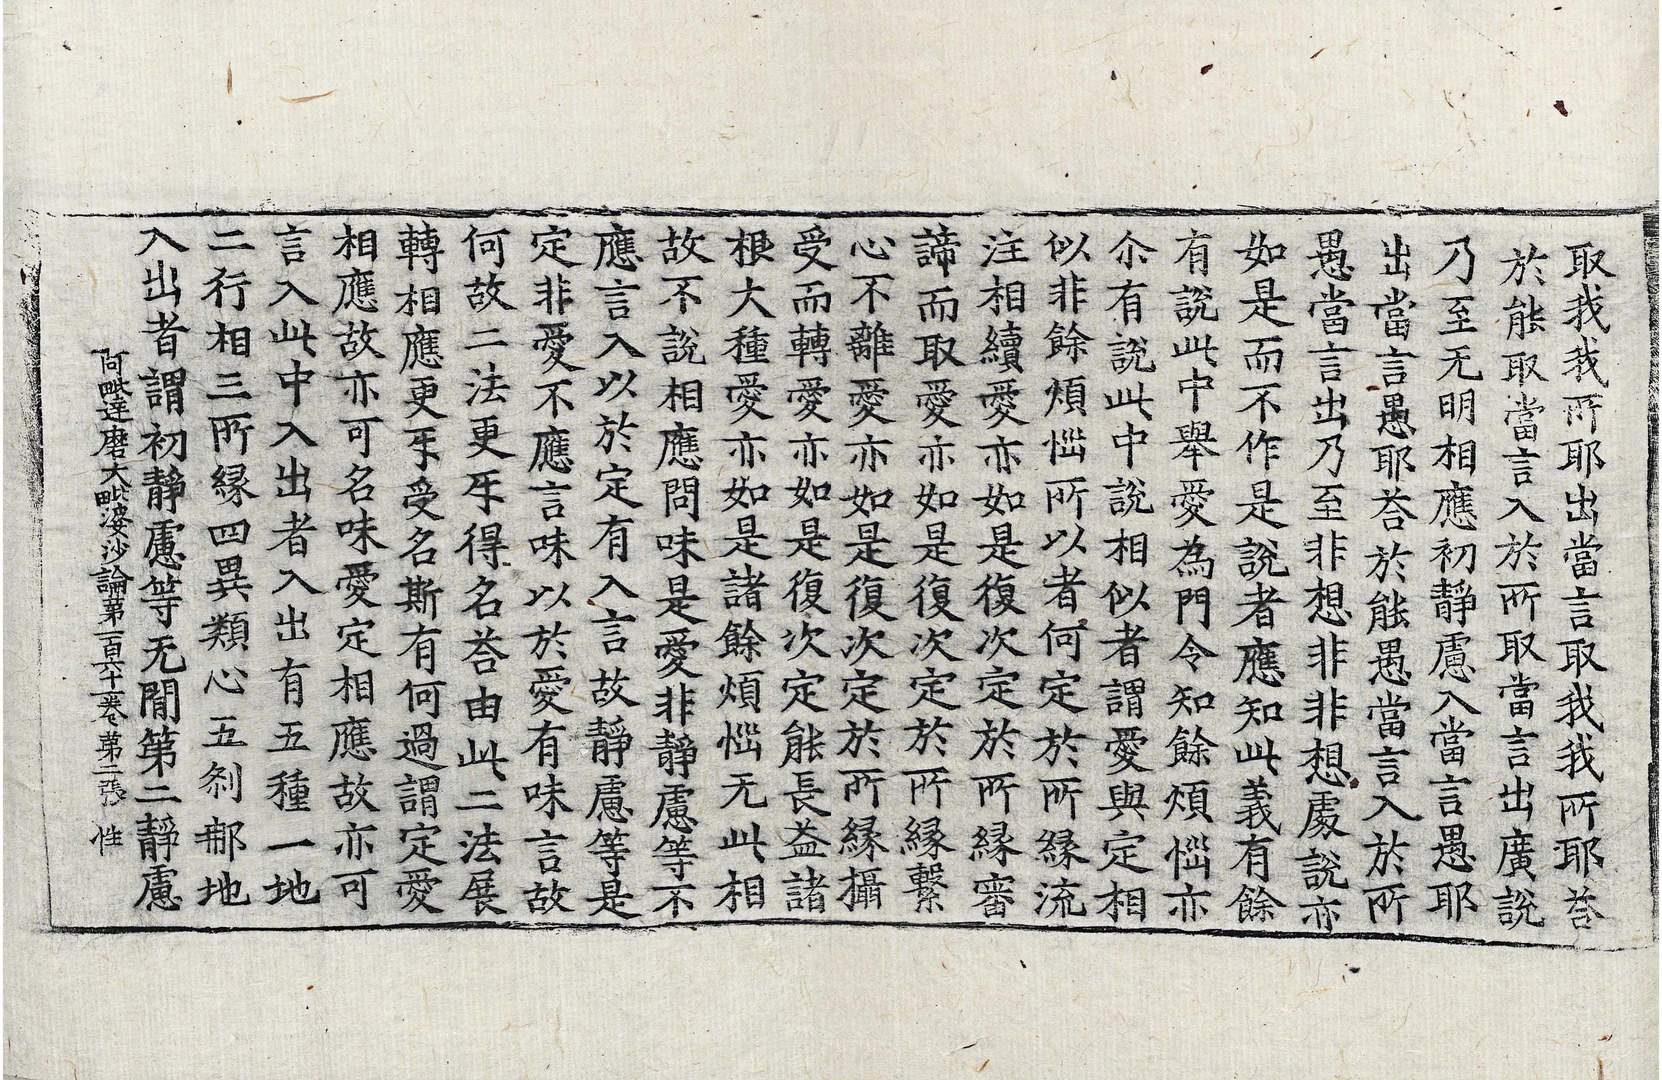 取我我所耶出當言取我我所耶荅
於能取當言入於所取當言出廣說
乃至无明相應初靜慮入當言愚耶
出當言愚耶荅於能愚當言入於所
愚當言出乃至非想非非想處說亦
如是而不作是說者應知此義有餘
有說此中舉愛為門令知餘煩惱亦
尒有說此中說相似者謂愛與定相
似非餘煩惱所以者何定於所緣流
注相續愛亦如是復次定於所緣審
諦而取愛亦如是復次定於所緣繫
心不離愛亦如是復次定於所緣攝
受而轉愛亦如是復次定能長益諸
根大種愛亦如是諸餘煩惱无此相
故不說相應問味是愛非靜慮等不
應言入以於定有入言故靜慮等是
定非愛不應言味以於愛有味言故
何故二法更㸦得名荅由此二法展
轉相應更㸦受名斯有何過謂定愛
相應故亦可名味愛定相應故亦可
言入此中入出者入出有五種一地
二行相三所緣四異類心五剎那地
入出者謂初靜慮等无間第二靜慮
阿毗達磨大毗婆沙論第一百六十一卷 第二張 惟